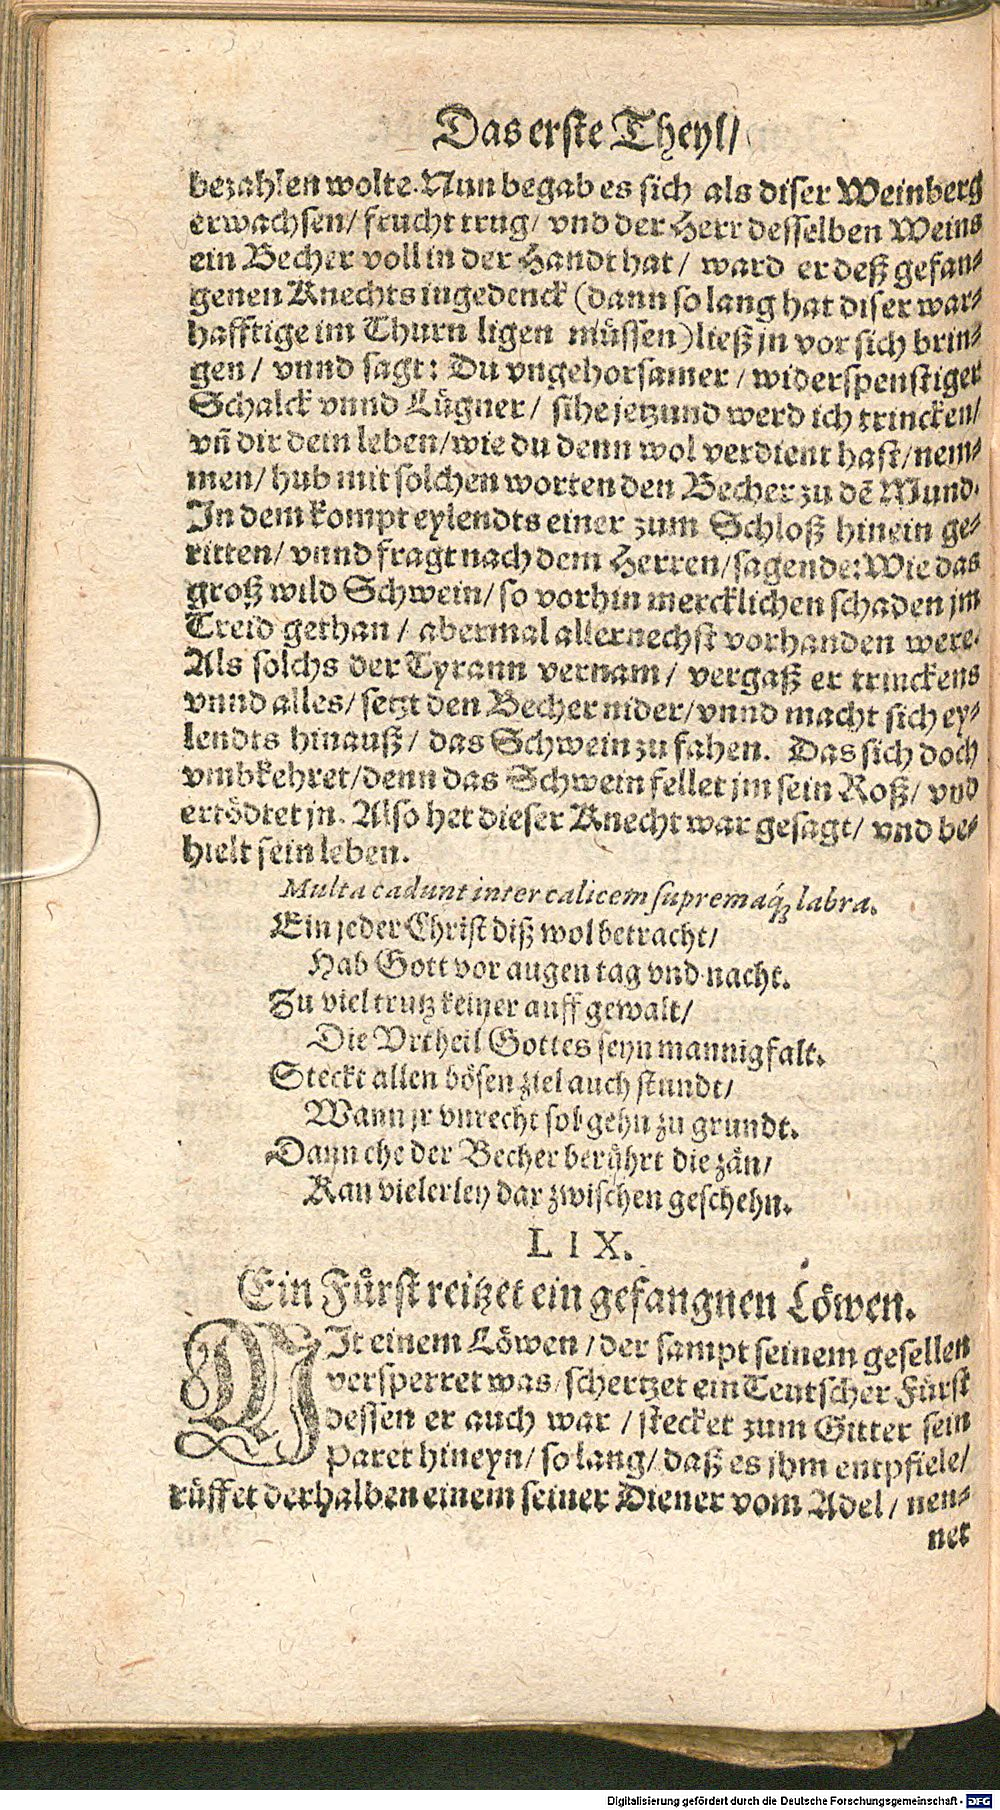 Das erste Theyl/
bezahlen wolte. Nun begab es sich als diser Weinberg
erwachsen/ frucht trug/ vnd der Herr desselben Weins
ein Becher voll in der Handt hat/ ward er deß gefan-
genen Knechts ingedenck (dann so lang hat diser war-
hafftige im Thurn ligen müssen) ließ jn vor sich brin-
gen/ vnnd sagt: Du vngehorsamer/ widerspenstiger
Schalck vnnd Lügner/ sihe jetzund werd ich trincken/
vñ dir dein leben/ wie du denn wol verdient hast/ nem-
men/ hub mit solchen worten den Becher zu dẽ Mund.
In dem kompt eylendts einer zum Schloß hinein ge-
ritten/ vnnd fragt nach dem Herren/ sagende: Wie das
groß wild Schwein/ so vorhin mercklichen schaden jm
Treid gethan/ abermal allernechst vorhanden were.
Als solchs der Tyrann vernam/ vergaß er trinckens
vnnd alles/ setzt den Becher nider/ vnnd macht sich ey-
lendts hinauß/ das Schwein zu fahen. Das sich doch
vmbkehret/ denn das Schwein fellet jm sein Roß/ vnd
ertödtet jn. Also het dieser Knecht war gesagt/ vnd be-
hielt sein leben.
Multa cadunt inter calicem supremaq́; labra.
Ein jeder Christ diß wol betracht/
Hab Gott vor augen tag vnd nacht.
Zu viel trutz keiner auff gewalt/
Die Vrtheil Gottes seyn mannigfalt.
Steckt allen bösen ziel auch stundt/
Wann jr vnrecht sol gehn zu grundt.
Dann ehe der Becher berührt die zän/
Kan vielerley dar zwischen geschehn.
LIX.
Ein Fürst reitzet ein gefangnen Löwen.
MIt einem Löwen/ der sampt seinem gesellen
versperret was/ schertzet ein Teutscher Fürst
dessen er auch war/ stecket zum Gitter sein
Paret hineyn/ so lang/ daß es jhm entpfiele/
rüffet derhalben einem seiner Diener vom Adel/ nen-
net
Digitalisierung gefördert durch die Deutsche Forschungsgemeinschaft - DFG